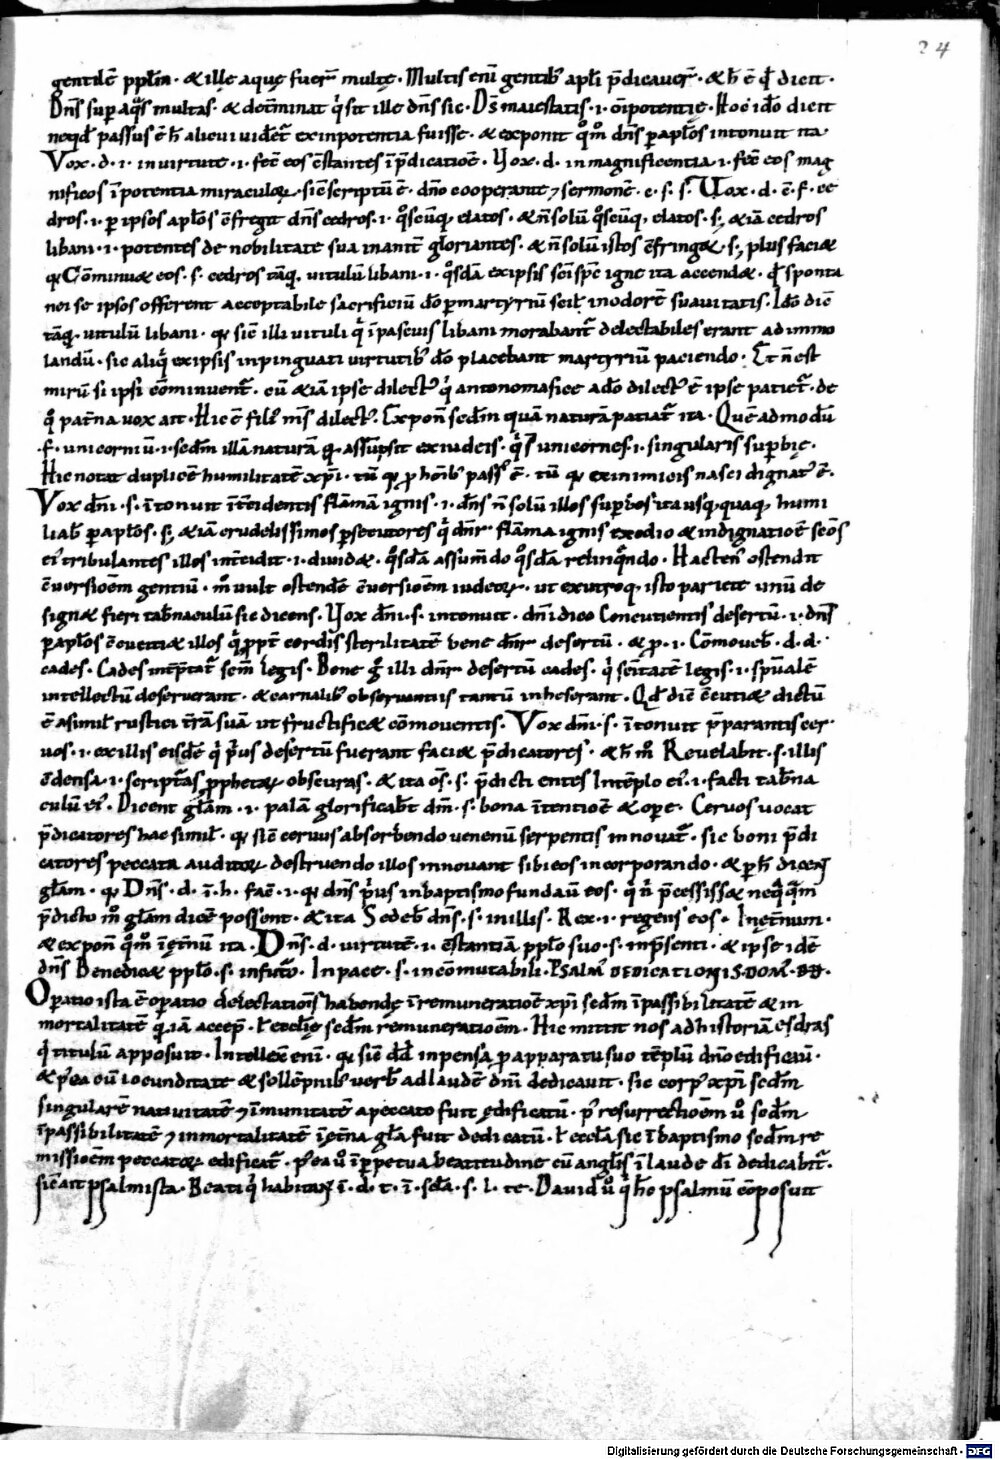 24
gentilē ppl̄m · & ille aquę fuer̄ multę · Multis eni᷒ gentib; apl̄i p̄dicaver̄ · & h̄ ē qd̄ dicit ·
Dn̄s sup aq̄s multas · & det̄minat q̄ sit ille dn̄s sic · Ds̄ maiestatis · i · oīpotentię · Hoc id̄o dicit
neqd̄ passus ē h̄ alicui vider̄ ex inpotentia fuisse · & exponit qōm dn̄s p apl̄os intonuit ita
Vox · d · i · in virtute · i · fec̄ eos c̄stantes ī p̄dicatiōe · Vox · d · in magnificentia · i · fec̄ eos mag
nificos ī potentia miraculoꝝ · sic̄ scriptū ē · dn̄o cooperante ⁊ sermonē · c · s · s · Vox · d · c̄ · f · ce
dros · i · p ipsos apl̄os c̄fregit dn̄s cedros · i · q̄scūq; elatos · & n̄ solū q̄scūq; elatos · s; & iā cedros
libani · i · potentes de nobilitate sua inanit̄ gl̄oriantes · & n̄ solū istos c̄fring& · s; plus faci&
q; Cōminu& eos · s · cedros tāq; vitulū libani · i · q̄sdā ex ipsis sc̄i sp̄c igne ita accend& · qd̄ sponta
nei se ipsos offerent acceptabile sacrificiū dō p martyriū scil; in odorē suavitatis · Ido dic̄
tāq; vitulū libani · q; sic̄ illi vituli q̄ ī pascuis libani morabant̄ delectabiles erant ad immo
landū · sic aliq̄ ex ipsis inpinguati virtutib; dō placebant martyriū paciendo · Et n̄ est
mirū si ipsi cōminuent̄ · cū & iā ipse dilect᷒ q̄ antonomasice a dō dilect᷒ ē ipse patiet̄ · de
q̄ pat̄na vox ait · Hic ē fili᷒ m̄s dilect᷒ · Expon̄ sed̄m quā naturā patiat̄ ita · Quē ad modū
· f · unicorniū · i · sed̄m illā naturā q; assūpsit ex iudeis · q̄ s̄ unicornes · i · singularis supbię ·
Hic notat duplicē humilitatē xp̄i · tū q; p hōib; pass᷒ ē · tū q; ex inimicis nasci dignat᷒ ē ·
Vox dn̄i · s · ītonuit īt̄cidentis flāmā ignis · i · dn̄s n̄ solū illos supbos ita usq; quaq; humi
liab̄ p apl̄os · s; & iā crudelissimos p̄secutores q̄ dn̄r flāma ignis ex odio & indignatiōe sc̄os
ei᷒ tribulantes illos int̄cidit · i · divid& · q̄sdā assum̄do q̄sdā relinq̄ndo · Hacten᷒ ostendit
c̄versiōem gentiū · m̊ vult ostendē c̄versiōem iudeoꝝ · ut ex utroq; isto pariete unū de
sign& fieri tab̄naculū sic dicens · Vox dn̄i · s · intonuit · dn̄i dico Concutientis desertū · i · dn̄s
p apl̄os c̄cuti& illos q̄ ppt̄ cordis sterilitatē bene dn̄r desertū · & p · i · Cōmoveb̄ · d · d ·
cades · Cades int̄p̄tat̄ sem̄ legis · Bene g̊ illi dn̄r desertū cades · q̄ sc̄itatē legis · i · sp̄ualē
intellectū deseruerant · & carnalib; observantiis tantū inheserant · Qd̄ dic̄ c̄cuti& dictū
ē a simil̄ rustici t̄rā suā ut fructific& cōmoventis · Vox dn̄i · s · ītonuit p̄parantis cer
vos · i · ex illis eisdē q̄ p̄us desertū fuerant faci& p̄dicatores · & h̄ m̊ Revelab̄it · s · illis
c̄densa · i · scripturas pphetaꝝ obscuras · & ita oēs · s · p̄dicti entes In tēplo ei᷒ · i · facti tab̄na
culū ei᷒ · Dicent gl̄am · i · palā glorificab̄t dm̄ · s · bona ītentiōe & ope · Cervos vocat
p̄dicatores hac simil̄ · q; sic̄ cervus absorbendo venenū serpentis innovat̄ · sic boni p̄di
catores peccata auditoꝝ destruendo illos innovant sibi eos incorporando · & p h̄ dicent
gl̄am · q; Dn̄s · d · ī · h · fac̄ · i · q; dn̄s p̄us in baptismo fundav̄ eos · q̄ n̄ p̄cessiss& neq̄q̄m
p̄dicto m̊ gl̄am dicē possent · & ita Sedeb̄ dn̄s · s · in illis · Rex · i · regens eos · In et̄num ·
& expon̄ qōm ī et̄nū ita · Dn̄s · d · virtutē · i · c̄stantiā pplo suo · s · in p̄senti · & ipse idē
dn̄s Benedic& pplo · s · in futuro · In pace · s · incōmutabili · PSALM᷒ DEDICATIONIS · DOM᷒ · DD ·
Operatio ista ē operatio delectationis habendę ī remuneratiōe xp̄i sed̄m īpassibilitatē & in
mortalitatē q; iā accep̄ · l̄ ecclię sed̄m remuneratiōem · Hic mittit nos ad historiā esdras
q̄ titulū apposuit · Intellex̄ eni᷒ · q; sic̄ dd̄ inpensa p apparatu suo tēplū dn̄o edificavi ·
& p̄ea cū iocunditate & sollēpnib; verb̄ ad laudē dn̄i dedicavit · sic corp᷒ xp̄i sed̄m
singularē nativitatē ⁊ īmunitatē a peccato fuit ędificatū · p᷒ resurrectiōem v̊ sed̄m
īpassibilitatē ⁊ inmortalitatē ī et̄na gl̄a fuit dedicatū · l̄ eccl̄a sic ī baptismo sed̄m re
missiōem peccatoꝝ edificat̄ · p̄ea v̊ ī ppetua beatitudine cū angl̄is ī laude dī dedicabit̄ ·
sic̄ ait psalmista · Beati q̄ habitant ī · d · t · ī · sc̄la · s · l · te · David v̊ q̄ hc̄ psalmū cōposuit
Digitalisierung gefördert durch die Deutsche Forschungsgemeinschaft - DFG